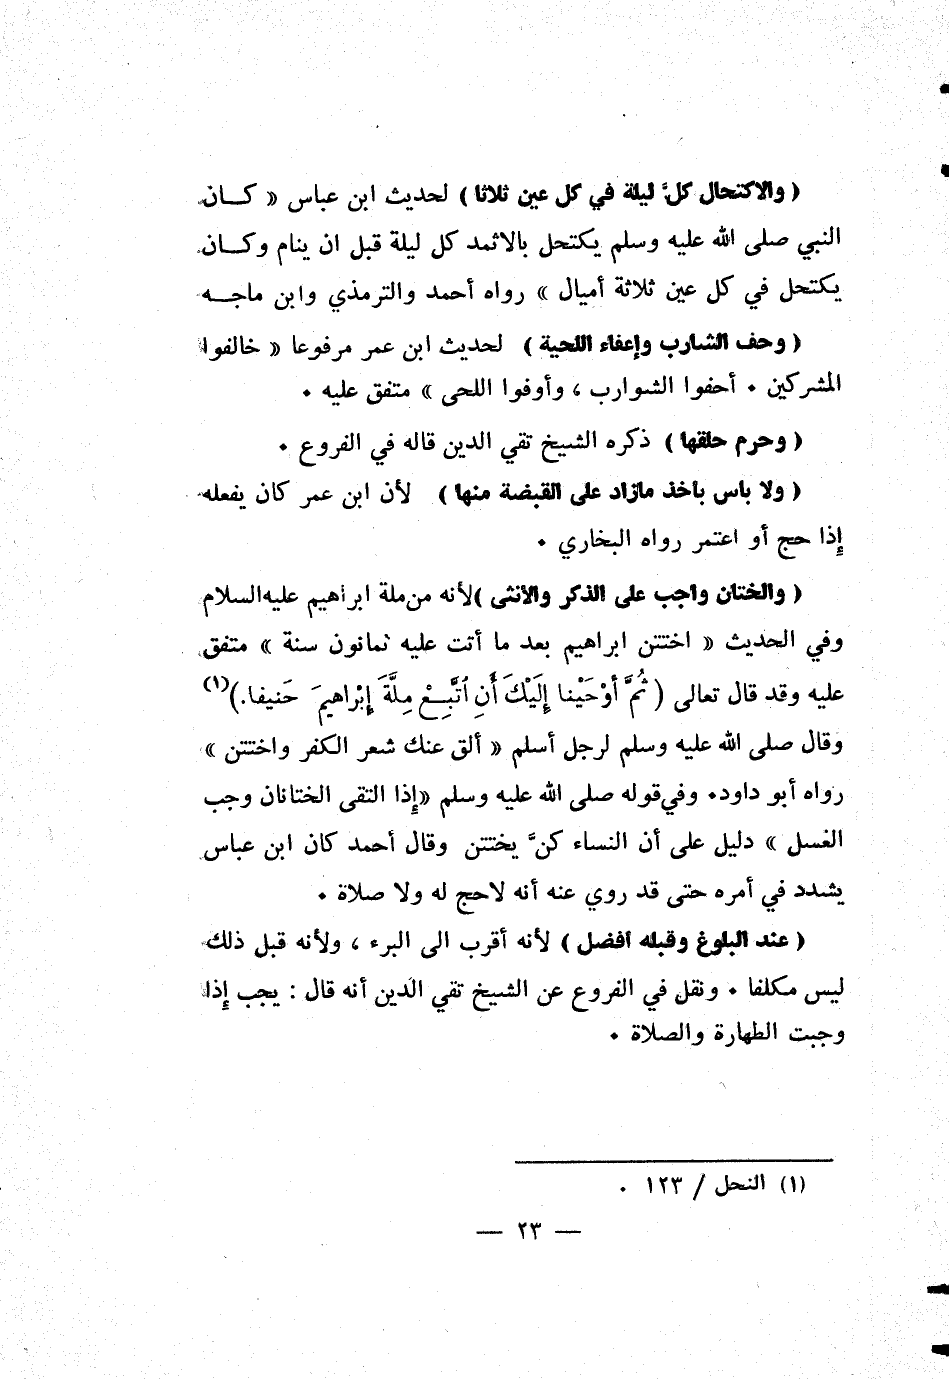 ( والاكتحال كلَّ ليلة في كل عين ثلاثا ) لحديث ابن عباس « كــان
النبي صلى الله عليه وسلم يكتحل بالاثمد كل ليلة قبل ان ينام وكــان
يكتحل في كل عين ثلاثة أميال » رواه أحمد والترمذي وابن ماجــه
( وحف الشارب وإعفاء اللحية ) لحديث ابن عمر مرفوعا « خالفوا
المشركين ٠ أحفوا الشوارب ، وأوفوا اللحى » متفق عليه ٠
( وحرم حلقها ) ذكره الشيخ تقي الدين قاله في الفروع ٠
( ولا بأس بأخذ مازاد على القبضة منها ) لأن ابن عمر كان يفعله
إذا حج أو اعتمر رواه البخاري ٠
( والختان واجب على الذكر والأنثى )لأنه من ملة ابراهيم عليه السلام
وفي الحديث « اختتن ابراهيم بعد ما أتت عليه ثمانون سنة » متفق
عليه وقد قال تعالى ( ثُمَّ أَوْحَيْنا إِلَيْكَ أَنِ ٱتَّبِعْ مِلَّةَ إِبْراهِيمَ حَنيفا.)(١)
وقال صلى الله عليه وسلم لرجل أسلم « ألق عنك شعر الكفر واختتن »
رواه أبو داود٠ وفي قوله صلى الله عليه وسلم «إذا التقى الختانان وجب
الغسل » دليل على أن النساء كنَّ يختتن وقال أحمد كان ابن عباس
يشدد في أمره حتى قد روي عنه أنه لاحج له ولا صلاة ٠
( عند البلوغ وقبله أفضل ) لأنه أقرب الى البرء ، ولأنه قبل ذلك
ليس مكلفا ٠ ونقل في الفروع عن الشيخ تقي الدين أنه قال : يجب إذا
وجبت الطهارة والصلاة ٠
(١) النحل / ١٢٣ ٠
— ٢٣ —